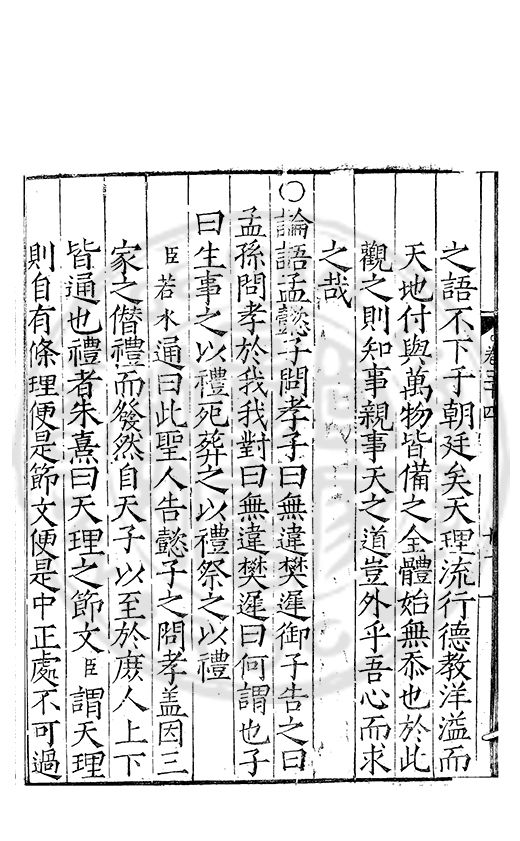 之語不下于朝廷矣天理流行德教洋溢而
天地付與萬物皆備之全體始無忝也於此
觀之則知事親事天之道豈外乎吾心而求
之哉
○論語孟懿子問孝子曰無違樊遲御子告之曰
孟孫問孝於我我對曰無違樊遲曰何謂也子
曰生事之以禮死葬之以禮祭之以禮
臣若水通曰此聖人告懿子之問孝盖因三
家之僣禮而發然自天子以至於庶人上下
皆通也禮者朱熹曰天理之節文臣謂天理
則自有條理便是節文便是中正處不可過